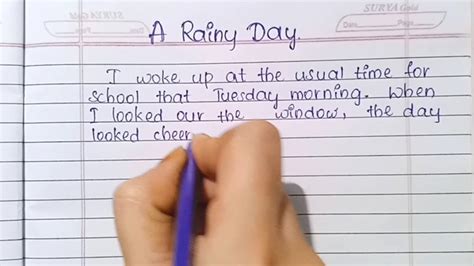 SURYA Gold
SURYA Gold
Date Page
A Rainy Day.
I woke up at the usual time for
school that Tuesday morning. When
I looked our the window, the day
looked cheer